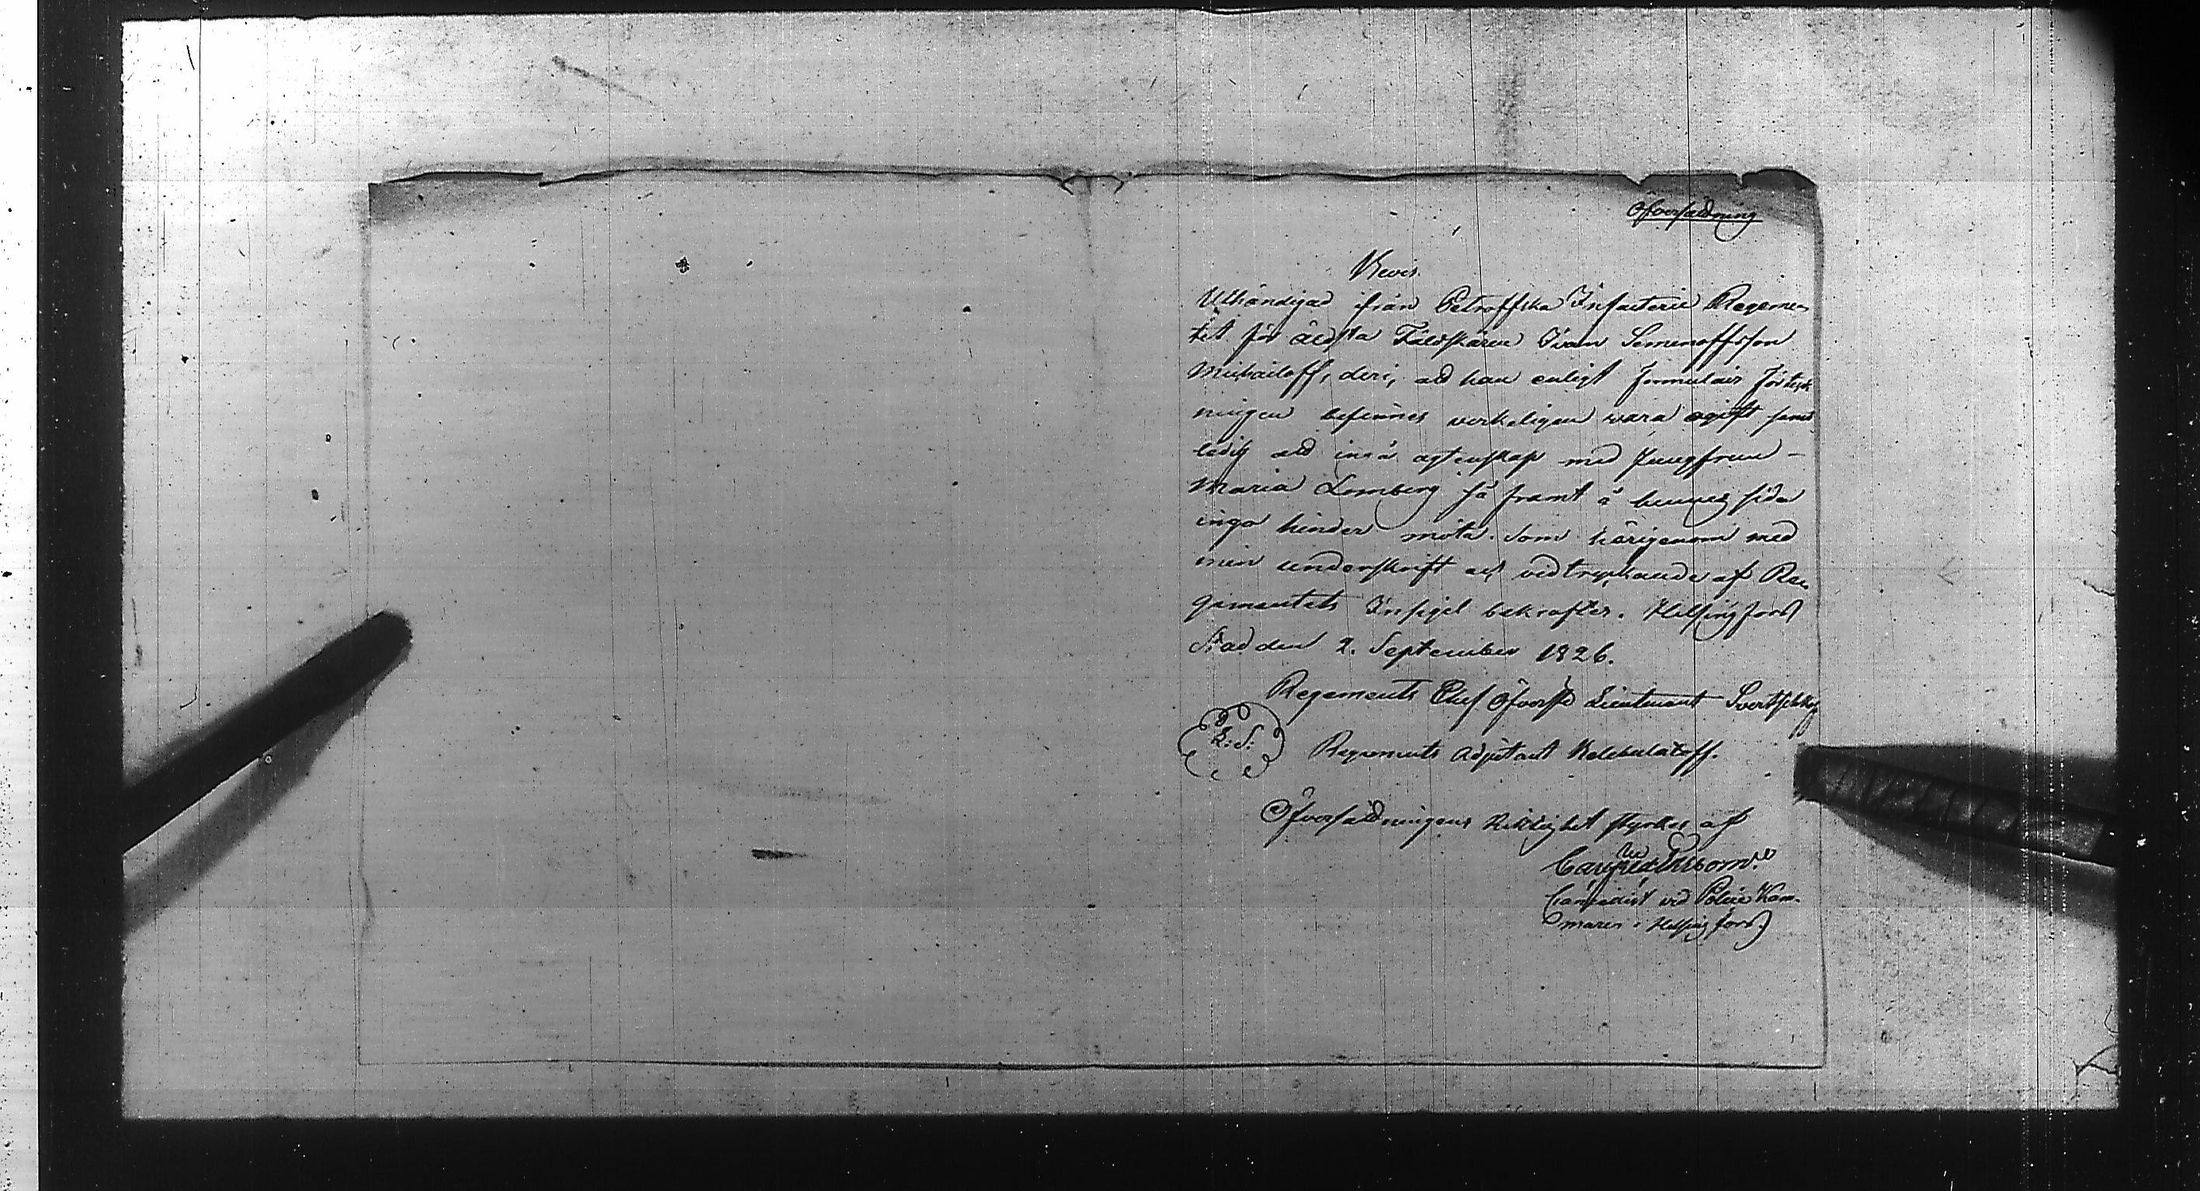 Öfversättning
Bevis
Uthändigad ifrån Petroffska Infanterie Regemen-
tet för äldsta Fältskären Ivan Semenoffsson
Michailoff, deri, att han enligt formulair förteck
ningen befinnes verkeligen vara ogift samt
ledig att ingå agtenskap med Jungfrun -
Maria Lomberg så framt å hennes sida
inga hinder möta. Som härigenom med
min underskrift och vidtryckande af Re-
gimentets Insigel bekräftes. Helsingfors
Stad den 2. September 1826.
Regements Chef Öfverste Lieutenant
L: S:
Regements Adjutant Kelebalatoff.
Öfversättningens riktighet styrker af
Cancellist vid Police Kam-
maren i Helsingfors